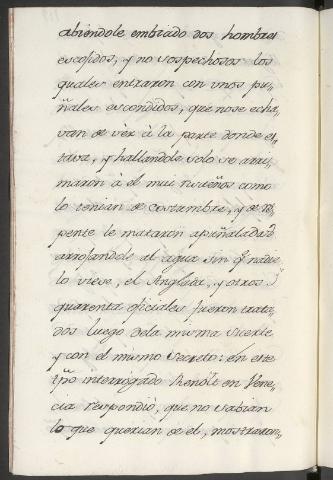 abiendole embiado dos hombres
escojidos, y no sospechosos los
quales entraron con unos pu-
ñales escondidos, que no se echa
van de vèr à la parte donde es-
tava, y hallandole solo se arri-
maron à el mui risueños como
lo tenian de costumbre, y de re-
pente le mataron apuñaladas
arrojandole al agua sin q nadie
lo viese, el Anglada, y otros
quarenta oficiales fueron trata-
dos luego dela misma suerte
y con el mismo secreto: En este
tpõ interrogado Renôlt en Vene-
cia respondiò, que no sabian
lo que querian de el, mostraron-